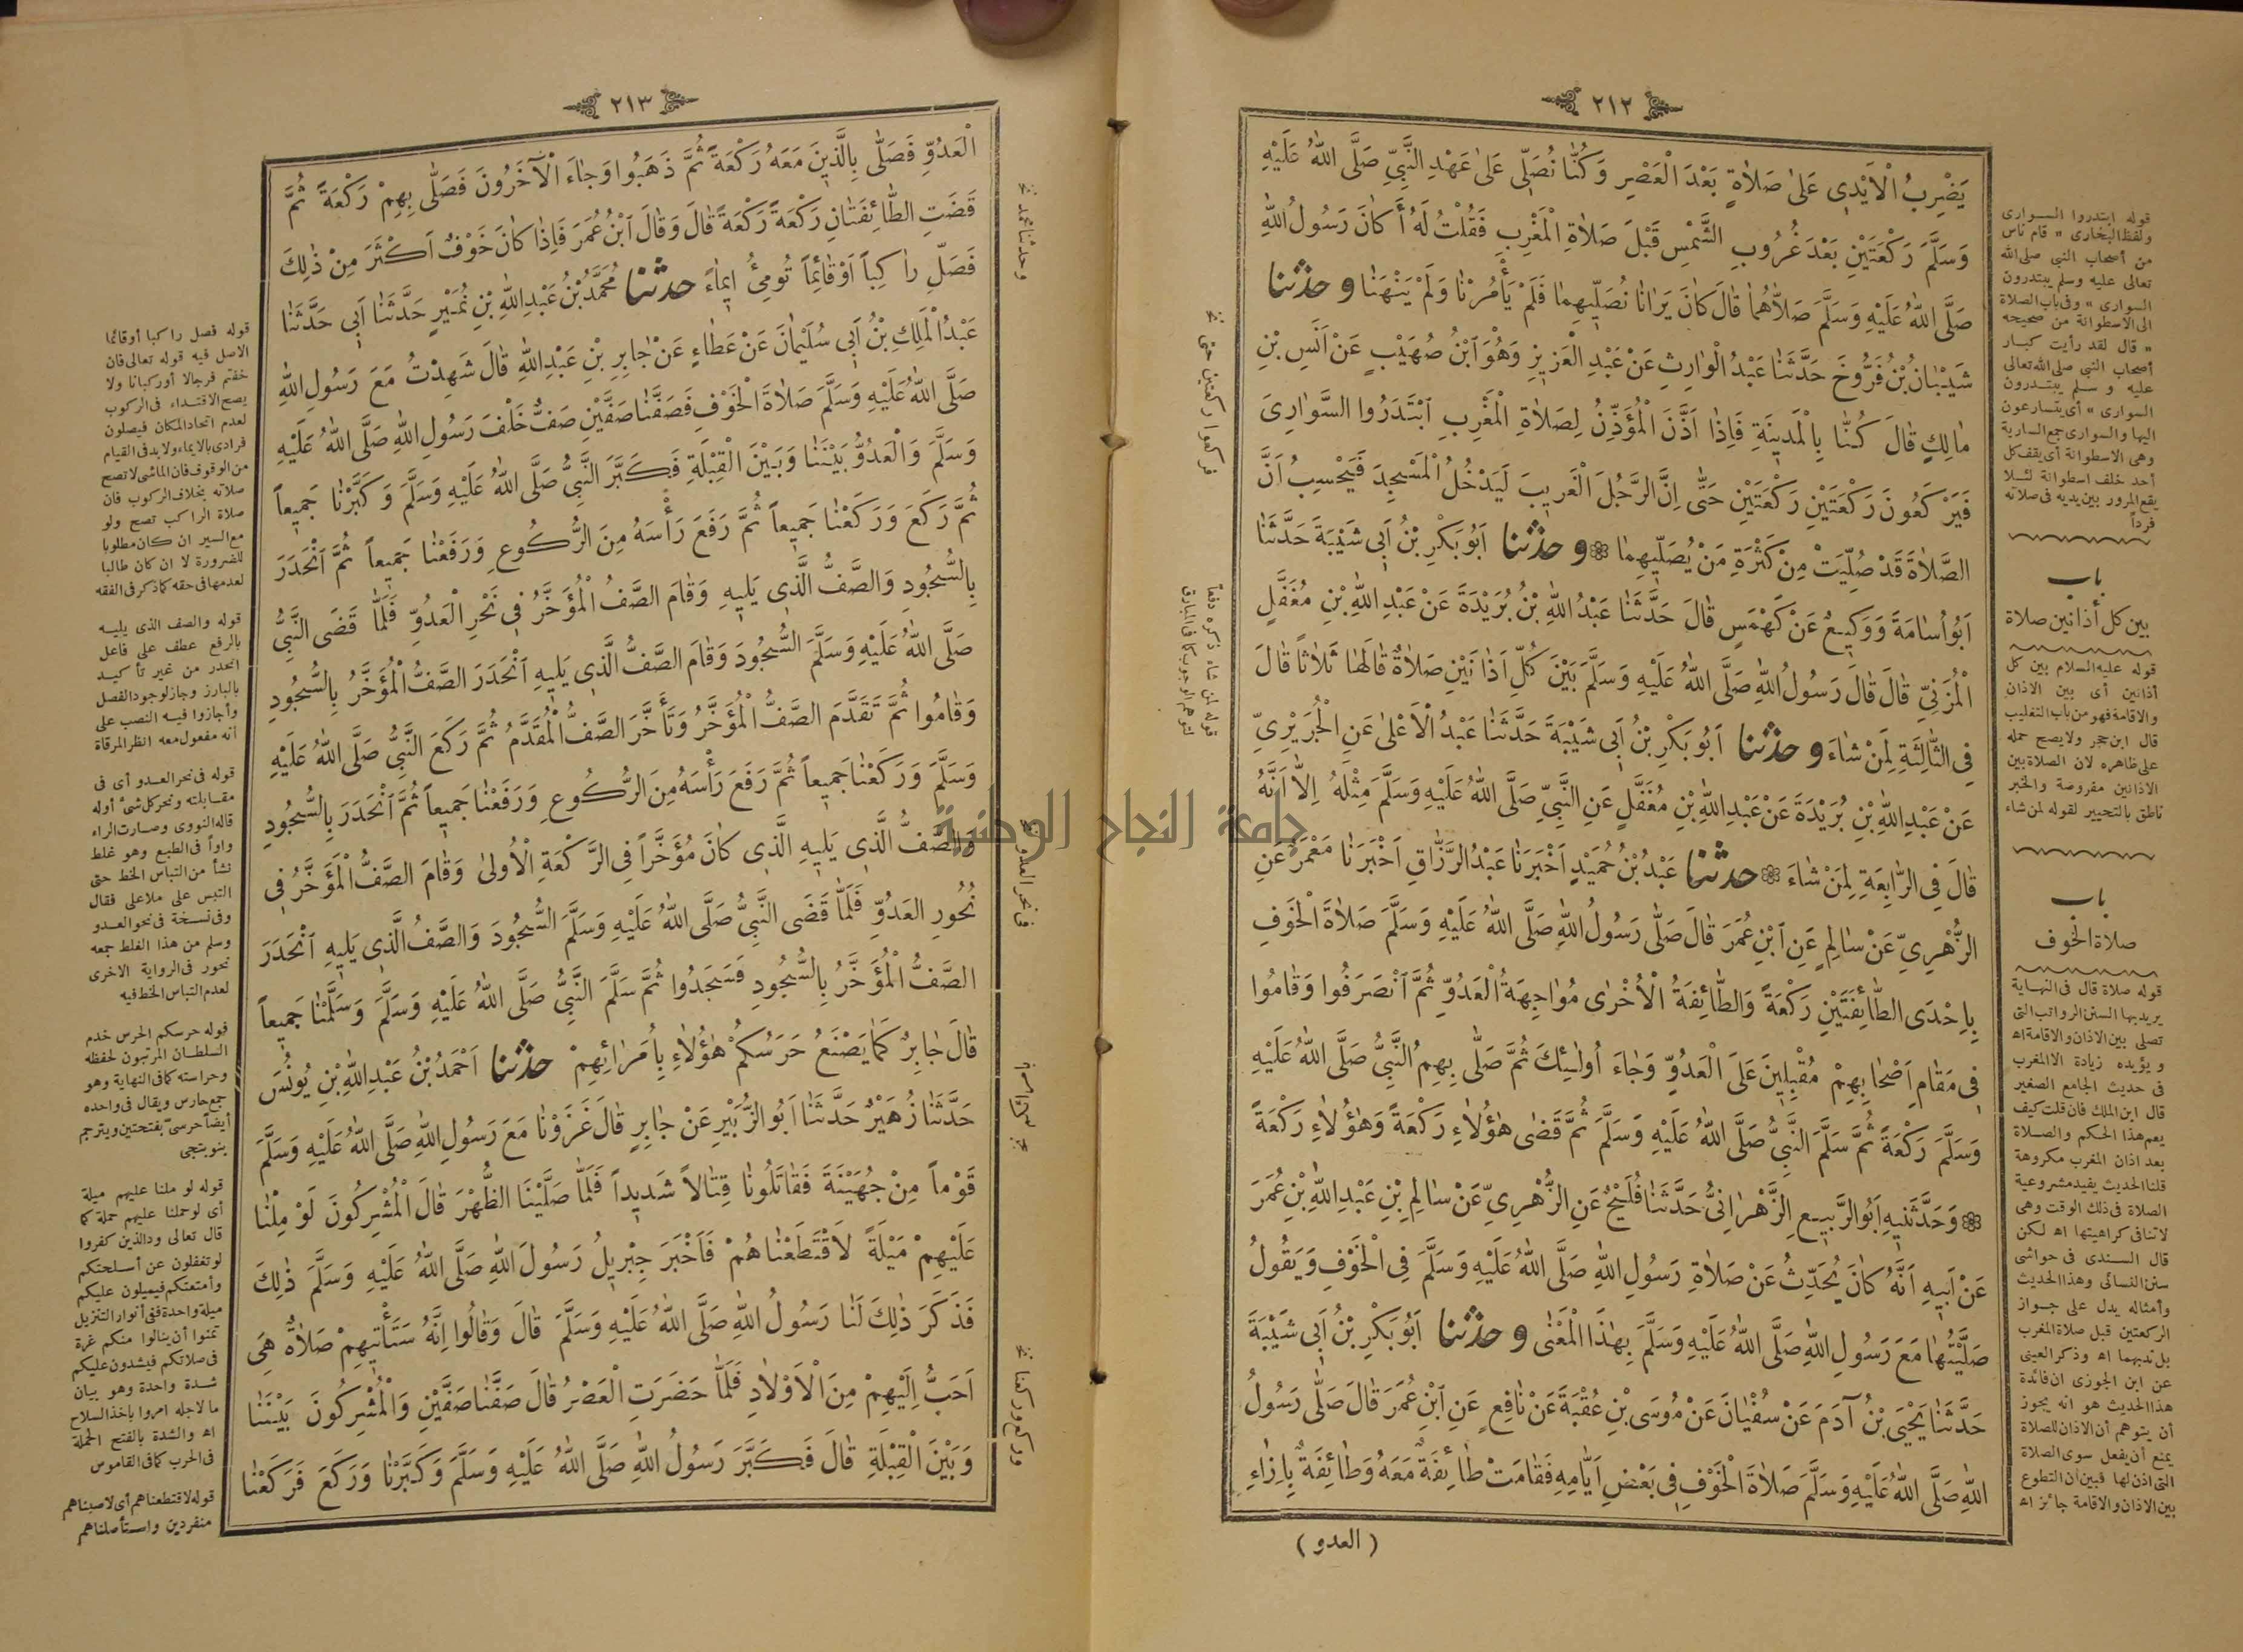 ٢١٢
يَضْرِبُ الْاَيْدِى عَلىٰ صَلاٰةٍ بَعْدَ الْعَصْرِ وَكُنّٰا نُصَلِّى عَلىٰ عَهْدِ النَّبِيِّ صَلَّى اللهُ عَلَيْهِ
وَسَلَّمَ رَكْعَتَيْنِ بَعْدَ غُرُوبِ الشَّمْسِ قَبْلَ صَلاٰةِ الْمَغْرِبِ فَقُلْتُ لَهُ أَكٰانَ رَسُولُ اللهِ
صَلَّى اللهُ عَلَيْهِ وَسَلَّمَ صَلاّٰهُمٰا قٰالَ كٰانَ يَرٰانٰا نُصَلِّيهِمٰا فَلَمْ يَأْمُرْنٰا وَلَمْ يَنْهَنٰا و حدثنا
شَيْبٰانُ بْنُ فَرُّوخَ حَدَّثَنٰا عَبْدُ الْوٰارِثِ عَنْ عَبْدِ الْعَزِيزِ وَهُوَ ابْنُ صُهَيْبٍ عَنْ اَنَسِ بْنِ
مٰالِكٍ قٰالَ كُنّٰا بِالْمَدِينَةِ فَاِذٰا اَذَّنَ الْمُؤَذِّنُ لِصَلاٰةِ الْمَغْرِبِ ابْتَدَرُوا السَّوٰارِىَ
فَيَرْكَعُونَ رَكْعَتَيْنِ رَكْعَتَيْنِ حَتّٰى اِنَّ الرَّجُلَ الْغَرِيبَ لَيَدْخُلُ الْمَسْجِدَ فَيَحْسِبُ اَنَّ
الصَّلاٰةَ قَدْ صُلِّيَتْ مِنْ كَثْرَةِ مَنْ يُصَلِّيهِمٰا و حدثنا اَبُوبَكْرِ بْنُ اَبِى شَيْبَةَ حَدَّثَنٰا
اَبُو اُسٰامَةَ وَوَكِيعٌ عَنْ كَهْمَسٍ قٰالَ حَدَّثَنٰا عَبْدُ اللهِ بْنُ بُرَيْدَةَ عَنْ عَبْدِ اللهِ بْنِ مُغَفَّلٍ
الْمُزَنِيِّ قٰالَ قٰالَ رَسُولُ اللهِ صَلَّى اللهُ عَلَيْهِ وَسَلَّمَ بَيْنَ كُلِّ اَذٰانَيْنِ صَلاٰةٌ قٰالَهٰا ثَلاٰثًا قٰالَ
فِى الثّٰالِثَةِ لِمَنْ شٰاءَ و حدثنا اَبُوبَكْرِ بْنُ اَبِى شَيْبَةَ حَدَّثَنٰا عَبْدُ الْاَعْلىٰ عَنِ الْجُرَيْرِيِّ
عَنْ عَبْدِ اللهِ بْنِ بُرَيْدَةَ عَنْ عَبْدِ اللهِ بْنِ مُغَفَّلٍ عَنِ النَّبِيِّ صَلَّى اللهُ عَلَيْهِ وَسَلَّمَ مِثْلَهُ اِلاّٰ اَنَّهُ
قٰالَ فِى الرّٰابِعَةِ لِمَنْ شٰاءَ حدثنا عَبْدُ بْنُ حُمَيْدٍ اَخْبَرَنٰا عَبْدُ الرَّزّٰاقِ اَخْبَرَنٰا مَعْمَرٌ عَنِ
الزُّهْرِيِّ عَنْ سٰالِمٍ عَنِ ابْنِ عُمَرَ قٰالَ صَلّٰى رَسُولُ اللهِ صَلَّى اللهُ عَلَيْهِ وَسَلَّمَ صَلاٰةَ الْخَوْفِ
بِاِحْدَى الطّٰائِفَتَيْنِ رَكْعَةً وَالطّٰائِفَةُ الْاُخْرٰى مُوٰاجِهَةُ الْعَدُوِّ ثُمَّ انْصَرَفُوا وَقٰامُوا
فِى مَقٰامِ اَصْحٰابِهِمْ مُقْبِلِينَ عَلَى الْعَدُوِّ وَجٰاءَ اُولٰئِكَ ثُمَّ صَلّٰى بِهِمُ النَّبِيُّ صَلَّى اللهُ عَلَيْهِ
وَسَلَّمَ رَكْعَةً ثُمَّ سَلَّمَ النَّبِيُّ صَلَّى اللهُ عَلَيْهِ وَسَلَّمَ ثُمَّ قَضٰى هٰؤُلاٰءِ رَكْعَةً وَهٰؤُلاٰءِ رَكْعَةً
وَحَدَّثَنِيهِ اَبُو الرَّبِيعِ الزَّهْرٰانِيُّ حَدَّثَنٰا فُلَيْحٌ عَنِ الزُّهْرِيِّ عَنْ سٰالِمِ بْنِ عَبْدِ اللهِ بْنِ عُمَرَ
عَنْ اَبِيهِ اَنَّهُ كٰانَ يُحَدِّثُ عَنْ صَلاٰةِ رَسُولِ اللهِ صَلَّى اللهُ عَلَيْهِ وَسَلَّمَ فِى الْخَوْفِ وَيَقُولُ
صَلَّيْتُهٰا مَعَ رَسُولِ اللهِ صَلَّى اللهُ عَلَيْهِ وَسَلَّمَ بِهٰذَا الْمَعْنٰى و حدثنا اَبُوبَكْرِ بْنُ اَبِى شَيْبَةَ
حَدَّثَنٰا يَحْيَى بْنُ آدَمَ عَنْ سُفْيٰانَ عَنْ مُوسَى بْنِ عُقْبَةَ عَنْ نٰافِعٍ عَنِ ابْنِ عُمَرَ قٰالَ صَلّٰى رَسُولُ
اللهِ صَلَّى اللهُ عَلَيْهِ وَسَلَّمَ صَلاٰةَ الْخَوْفِ فِى بَعْضِ اَيّٰامِهِ فَقٰامَتْ طٰائِفَةٌ مَعَهُ وَطٰائِفَةٌ بِاِزٰاءِ
( العدو )
قوله ابتدروا السوارى
ولفظ البخارى « قام ناس
من أصحاب النبى صلى الله
تعالى عليه وسلم يبتدرون
السوارى » وفى باب الصلاة
الى الاسطوانة من صحيحه
« قال لقد رأيت كبار
أصحاب النبى صلى الله تعالى
عليه وسلم يبتدرون
السوارى » أى يتسارعون
اليها والسوارى جمع السارية
وهى الاسطوانة أى يقف كل
أحد خلف اسطوانة لئلا
يقع المرور بين يديه فى صلاته
فرداً
باب
بين كل أذانين صلاة
قوله عليه السلام بين كل
أذانين أى بين الاذان
والاقامة فهو من باب التغليب
قال ابن حجر ولا يصح حمله
على ظاهره لان الصلاة بين
الاذانين مفروضة والخبر
ناطق بالتخيير لقوله لمن شاء
باب
صلاة الخوف
قوله صلاة قال فى النهاية
يريد بها السنن الرواتب التى
تصلى بين الاذان والاقامة اه
ويؤيده زيادة الا المغرب
فى حديث الجامع الصغير
قال ابن الملك فان قلت كيف
يعم هذا الحكم والصلاة
بعد اذان المغرب مكروهة
قلنا الحديث يفيد مشروعية
الصلاة فى ذلك الوقت وهى
لا تنافى كراهيتها اه لكن
قال السندى فى حواشى
سنن النسائى وهذا الحديث
وأمثاله يدل على جواز
الركعتين قبل صلاة المغرب
بل ندبهما اه وذكر العينى
عن ابن الجوزى ان فائدة
هذا الحديث هو انه يجوز
أن يتوهم أن الاذان للصلاة
يمنع أن يفعل سوى الصلاة
التى اذن لها فبين ان التطوع
بين الاذان والاقامة جائز اه
فركعوا ركعتين حتى نخ
قوله لمن شاء ذكره دفعاً
لتوهم الوجوب كما فى المبارق
٢١٣
الْعَدُوِّ فَصَلّٰى بِالَّذِينَ مَعَهُ رَكْعَةً ثُمَّ ذَهَبُوا وَجٰاءَ الْآخَرُونَ فَصَلّٰى بِهِمْ رَكْعَةً ثُمَّ
قَضَتِ الطّٰائِفَتٰانِ رَكْعَةً رَكْعَةً قٰالَ وَقٰالَ ابْنُ عُمَرَ فَاِذٰا كٰانَ خَوْفٌ اَكْثَرَ مِنْ ذٰلِكَ
فَصَلِّ رٰاكِباً اَوْ قٰائِماً تُومِئُ اِيمٰاءً حدثنا مُحَمَّدُ بْنُ عَبْدِ اللهِ بْنِ نُمَيْرٍ حَدَّثَنٰا اَبِى حَدَّثَنٰا
عَبْدُ الْمَلِكِ بْنُ اَبِى سُلَيْمٰانَ عَنْ عَطٰاءٍ عَنْ جٰابِرِ بْنِ عَبْدِ اللهِ قٰالَ شَهِدْتُ مَعَ رَسُولِ اللهِ
صَلَّى اللهُ عَلَيْهِ وَسَلَّمَ صَلاٰةَ الْخَوْفِ فَصَفَّنٰا صَفَّيْنِ صَفٌّ خَلْفَ رَسُولِ اللهِ صَلَّى اللهُ عَلَيْهِ
وَسَلَّمَ وَالْعَدُوُّ بَيْنَنٰا وَبَيْنَ الْقِبْلَةِ فَكَبَّرَ النَّبِيُّ صَلَّى اللهُ عَلَيْهِ وَسَلَّمَ وَكَبَّرْنٰا جَمِيعاً
ثُمَّ رَكَعَ وَرَكَعْنٰا جَمِيعاً ثُمَّ رَفَعَ رَأْسَهُ مِنَ الرُّكُوعِ وَرَفَعْنٰا جَمِيعاً ثُمَّ انْحَدَرَ
بِالسُّجُودِ وَالصَّفُّ الَّذِى يَلِيهِ وَقٰامَ الصَّفُّ الْمُؤَخَّرُ فِى نَحْرِ الْعَدُوِّ فَلَمّٰا قَضَى النَّبِيُّ
صَلَّى اللهُ عَلَيْهِ وَسَلَّمَ السُّجُودَ وَقٰامَ الصَّفُّ الَّذِى يَلِيهِ انْحَدَرَ الصَّفُّ الْمُؤَخَّرُ بِالسُّجُودِ
وَقٰامُوا ثُمَّ تَقَدَّمَ الصَّفُّ الْمُؤَخَّرُ وَتَأَخَّرَ الصَّفُّ الْمُقَدَّمُ ثُمَّ رَكَعَ النَّبِيُّ صَلَّى اللهُ عَلَيْهِ
وَسَلَّمَ وَرَكَعْنٰا جَمِيعاً ثُمَّ رَفَعَ رَأْسَهُ مِنَ الرُّكُوعِ وَرَفَعْنٰا جَمِيعاً ثُمَّ انْحَدَرَ بِالسُّجُودِ
وَالصَّفُّ الَّذِى يَلِيهِ الَّذِى كٰانَ مُؤَخَّراً فِى الرَّكْعَةِ الْاُولىٰ وَقٰامَ الصَّفُّ الْمُؤَخَّرُ فِى
نُحُورِ الْعَدُوِّ فَلَمّٰا قَضَى النَّبِيُّ صَلَّى اللهُ عَلَيْهِ وَسَلَّمَ السُّجُودَ وَالصَّفُّ الَّذِى يَلِيهِ انْحَدَرَ
الصَّفُّ الْمُؤَخَّرُ بِالسُّجُودِ فَسَجَدُوا ثُمَّ سَلَّمَ النَّبِيُّ صَلَّى اللهُ عَلَيْهِ وَسَلَّمَ وَسَلَّمْنٰا جَمِيعاً
قٰالَ جٰابِرٌ كَمٰا يَصْنَعُ حَرَسُكُمْ هٰؤُلاٰءِ بِاُمَرٰائِهِمْ حدثنا اَحْمَدُ بْنُ عَبْدِ اللهِ بْنِ يُونُسَ
حَدَّثَنٰا زُهَيْرٌ حَدَّثَنٰا اَبُو الزُّبَيْرِ عَنْ جٰابِرٍ قٰالَ غَزَوْنٰا مَعَ رَسُولِ اللهِ صَلَّى اللهُ عَلَيْهِ وَسَلَّمَ
قَوْماً مِنْ جُهَيْنَةَ فَقٰاتَلُونٰا قِتٰالاً شَدِيداً فَلَمّٰا صَلَّيْنَا الظُّهْرَ قٰالَ الْمُشْرِكُونَ لَوْ مِلْنٰا
عَلَيْهِمْ مَيْلَةً لَاقْتَطَعْنٰاهُمْ فَاَخْبَرَ جِبْرِيلُ رَسُولَ اللهِ صَلَّى اللهُ عَلَيْهِ وَسَلَّمَ ذٰلِكَ
فَذَكَرَ ذٰلِكَ لَنٰا رَسُولُ اللهِ صَلَّى اللهُ عَلَيْهِ وَسَلَّمَ قٰالَ وَقٰالُوا اِنَّهُ سَتَأْتِيهِمْ صَلاٰةٌ هِىَ
اَحَبُّ اِلَيْهِمْ مِنَ الْاَوْلاٰدِ فَلَمّٰا حَضَرَتِ الْعَصْرُ قٰالَ صَفَّنٰا صَفَّيْنِ وَالْمُشْرِكُونَ بَيْنَنٰا
وَبَيْنَ الْقِبْلَةِ قٰالَ فَكَبَّرَ رَسُولُ اللهِ صَلَّى اللهُ عَلَيْهِ وَسَلَّمَ وَكَبَّرْنٰا وَرَكَعَ فَرَكَعْنٰا
وحدثنا محمد نخ
فى نحر العدو نخ
وركع وركعنا نخ
قوله فصل راكبا أو قائما
الاصل فيه قوله تعالى فان
خفتم فرجالا أو ركبانا ولا
يصح الاقتداء فى الركوب
لعدم اتحاد المكان فيصلون
فرادى بالايماء ولا بد فى القيام
من الوقوف فان الماشى لا تصح
صلاته بخلاف الركوب فان
صلاة الراكب تصح ولو
مع السير ان كان مطلوبا
للضرورة لا ان كان طالبا
لعدمها فى حقه كما ذكر فى الفقه
قوله والصف الذى يليه
بالرفع عطف على فاعل
انحدر من غير تأكيد
بالبارز وجاز لوجود الفصل
وأجازوا فيه النصب على
أنه مفعول معه انظر المرقاة
قوله فى نحر العدو أى فى
مقابلته ونحر كل شئ أوله
قاله النووى وصارت الراء
واواً فى الطبع وهو غلط
نشأ من التباس الخط حتى
التبس على ملا على فقال
وفى نسخة فى نحو العدو
وسلم من هذا الغلط جمعه
نحور فى الرواية الاخرى
لعدم التباس الخط فيه
قوله حرسكم الحرس خدم
السلطان المرتبون لحفظه
وحراسته كما فى النهاية وهو
جمع حارس ويقال فى واحده
أيضاً حرسى بفتحتين ويترجم
بنوبتجى
قوله لو ملنا عليهم ميلة
أى لو حملنا عليهم حملة كما
قال تعالى ود الذين كفروا
لو تغفلون عن أسلحتكم
وأمتعتكم فيميلون عليكم
ميلة واحدة ففى أنوار التنزيل
تمنوا أن ينالوا منكم غرة
فى صلاتكم فيشدون عليكم
شدة واحدة وهو بيان
ما لاجله امروا باخذ السلاح
اه والشدة بالفتح الحملة
فى الحرب كما فى القاموس
قوله لاقتطعناهم أى لاصبناهم
منفردين واستأصلناهم
جامعة النجاح الوطنية